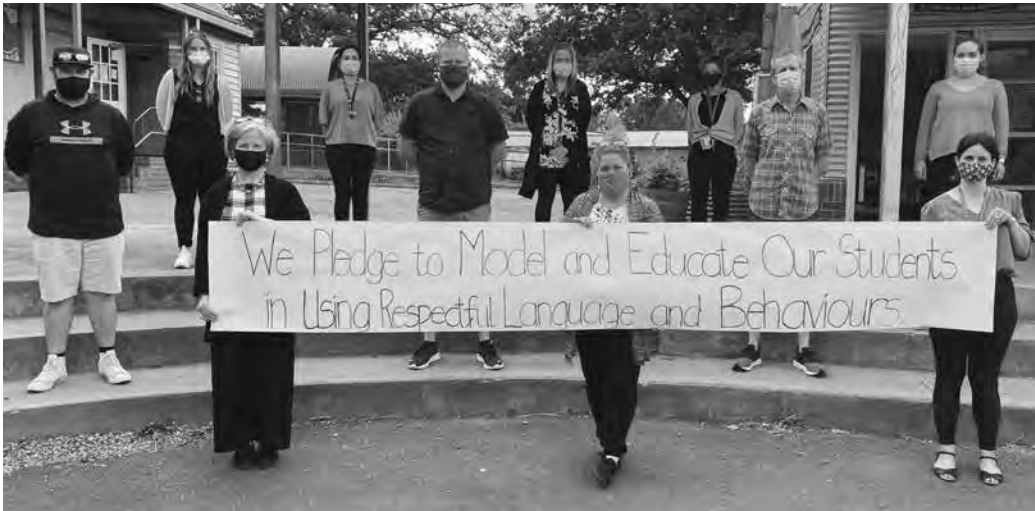 We Pledge to Model and Educate Our Students
in Using Respectful Language and Behaviours.